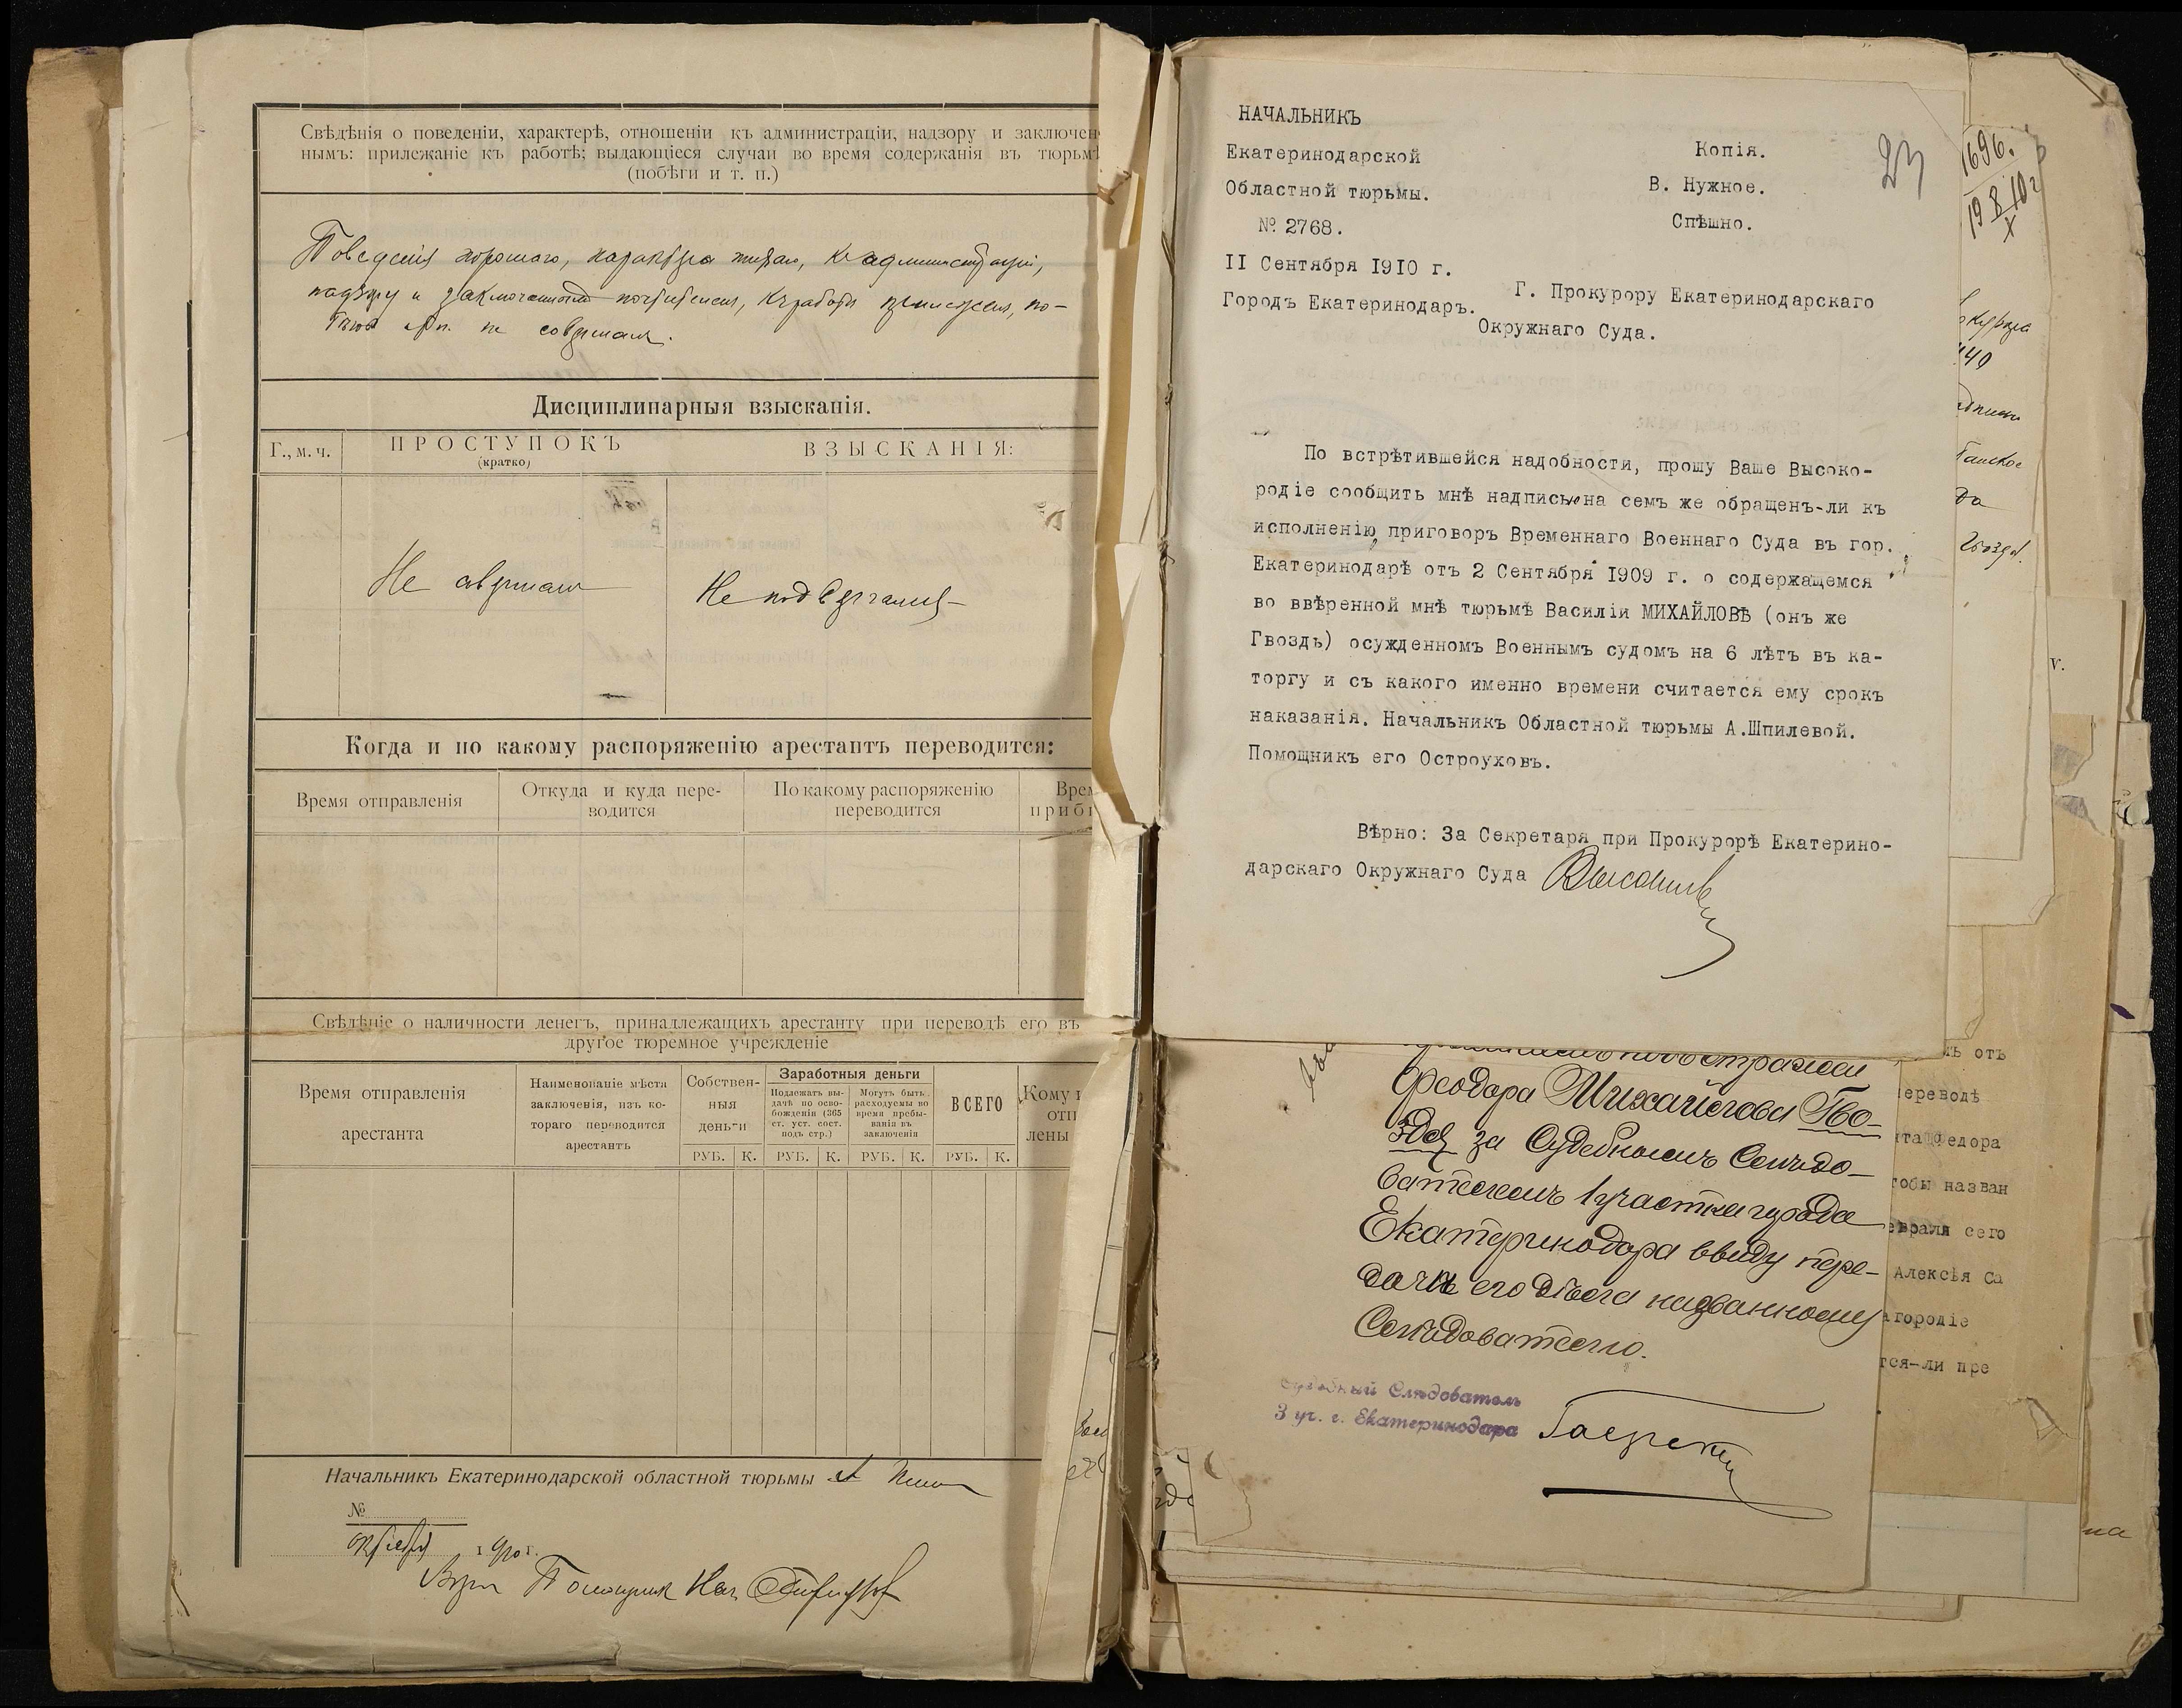 Свѣдѣнія о поведеніи, характерѣ, отношеніи къ администраціи, надзору и заключен-
нымъ: прилежаніе къ работѣ; выдающіеся случаи во время содержанія въ тюрьмѣ
(побѣги и т. п.)
Поведенія хорошаго, характера тихаго, къ администраціи,
надзору и заключеннымъ почтителенъ, къ работѣ прилеженъ, по-
не совершалъ.
Дисциплинарныя взысканія.
Г., м. ч.
ПРОСТУПОКЪ
(кратко)
ВЗЫСКАНІЯ:
Не совершалъ
Не подвергался
Когда и по какому распоряженію арестантъ переводится:
Время отправленія
Откуда и куда пере-
водится
По какому распоряженію
переводится
Врем
приб
Свѣдѣніе о наличности денегъ, принадлежащихъ арестанту при переводѣ его въ
другое тюремное учрежденіе
Время отправленія
арестанта
Наименованіе мѣста
заключенія, изъ ко-
тораго переводится
арестантъ
Собствен-
ныя
деньги
Заработныя деньги
Подлежатъ вы-
дачѣ по осво-
божденіи (365
ст. уст. сост.
подъ стр.)
Могутъ быть
расходуемы во
время пребы-
ванія въ
заключеніи
ВСЕГО
Кому
отп
лены
РУБ. К. РУБ. К. РУБ. К. РУБ. К.
Начальникъ Екатеринодарской областной тюрьмы А
№
октября 1910 г.
Помощник Нач.
НАЧАЛЬНИКЪ
Екатеринодарской
Областной тюрьмы.
№ 2768.
II Сентября 1910 г.
Городъ Екатеринодаръ.
Копія.
В. Нужное.
Спѣшно.
23
Г. Прокурору Екатеринодарскаго
Окружнаго Суда.
По встрѣтившейся надобности, прошу Ваше Высоко-
родіе сообщить мнѣ надписью на семъ же обращенъ-ли къ
исполненію приговоръ Временнаго Военнаго Суда въ гор.
Екатеринодарѣ отъ 2 Сентября 1909 г. о содержащемся
во ввѣренной мнѣ тюрьмѣ Василіи МИХАЙЛОВѢ (онъ же
Гвоздь) осужденномъ Военнымъ судомъ на 6 лѣтъ въ ка-
торгу и съ какого именно времени считается ему срокъ
наказанія. Начальникъ Областной тюрьмы А.Шпилевой.
Помощникъ его Остроуховъ.
Вѣрно: За Секретаря при Прокурорѣ Екатерино-
дарскаго Окружнаго Суда
стражи
Феодора Михайлова Гво-
здя за Судебнымъ Слѣдо-
вателемъ 1 участка города
Екатеринодара ввиду пере-
дачи его дѣла названному
Слѣдователю.
Судебный Слѣдователь
3 уч. г. Екатеринодара
1696.
19 8/X 10 г
140
да
Гвоздя.
v.
отъ
переводѣ
Федора
тобы назван
евраля сего
Алексѣя Са
агородіе
тся-ли пре